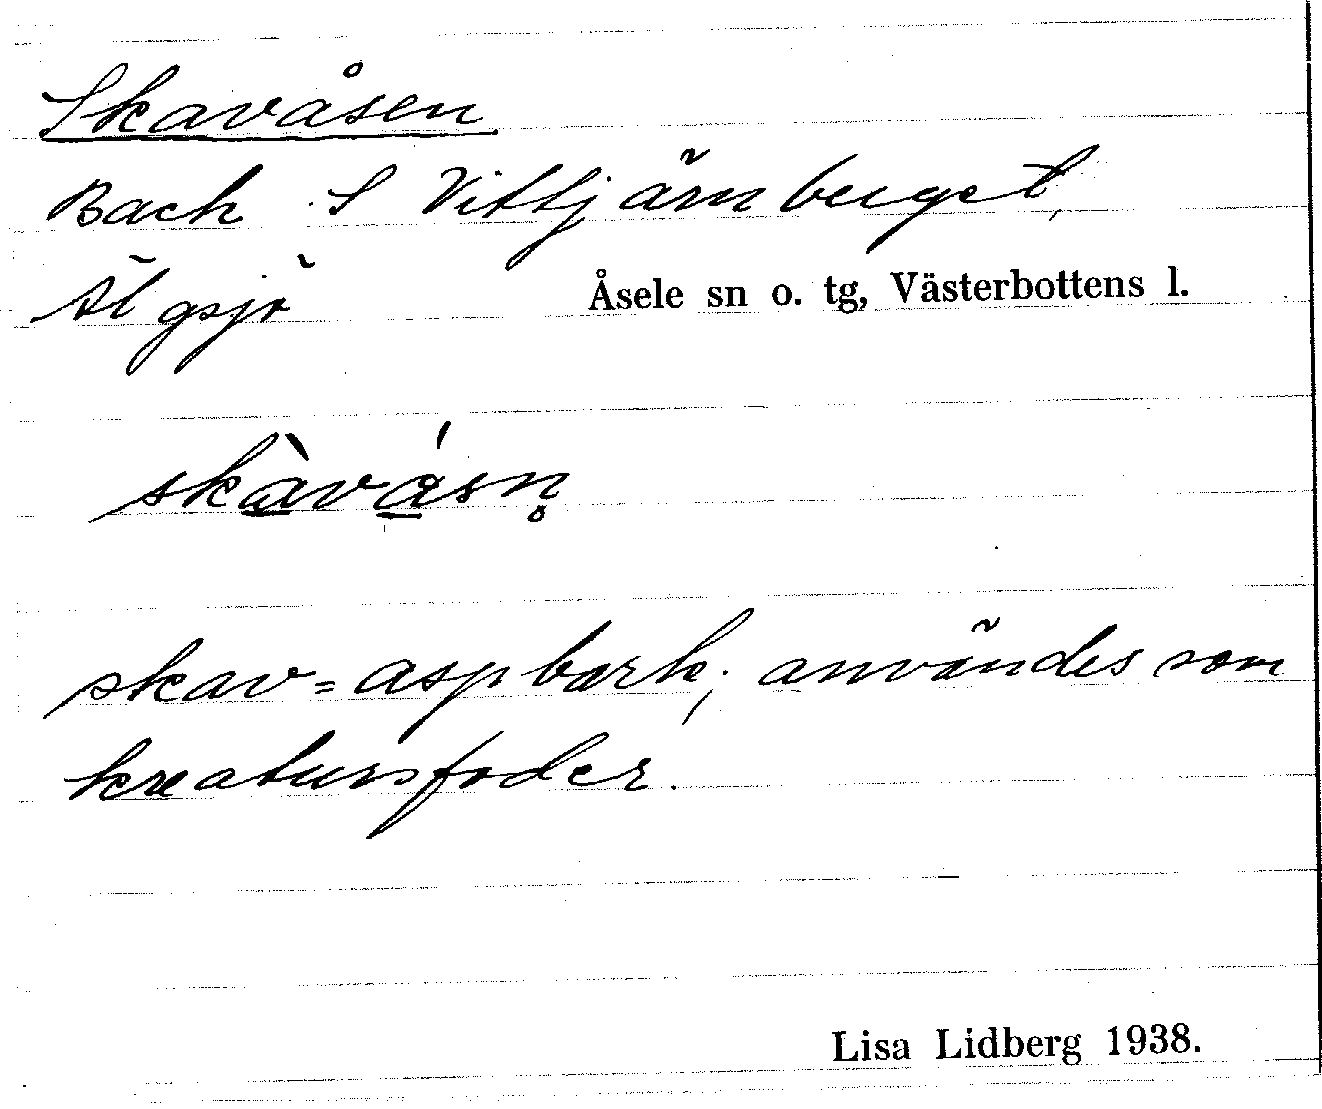 Skavåsen
Back S Vittjärnberget,
Älgsjö Åsele sn o. tg, Västerbottens l.
skàvásn̥
skav = aspbark; användes som
kreatursfoder.
Lisa Lidberg 1938.